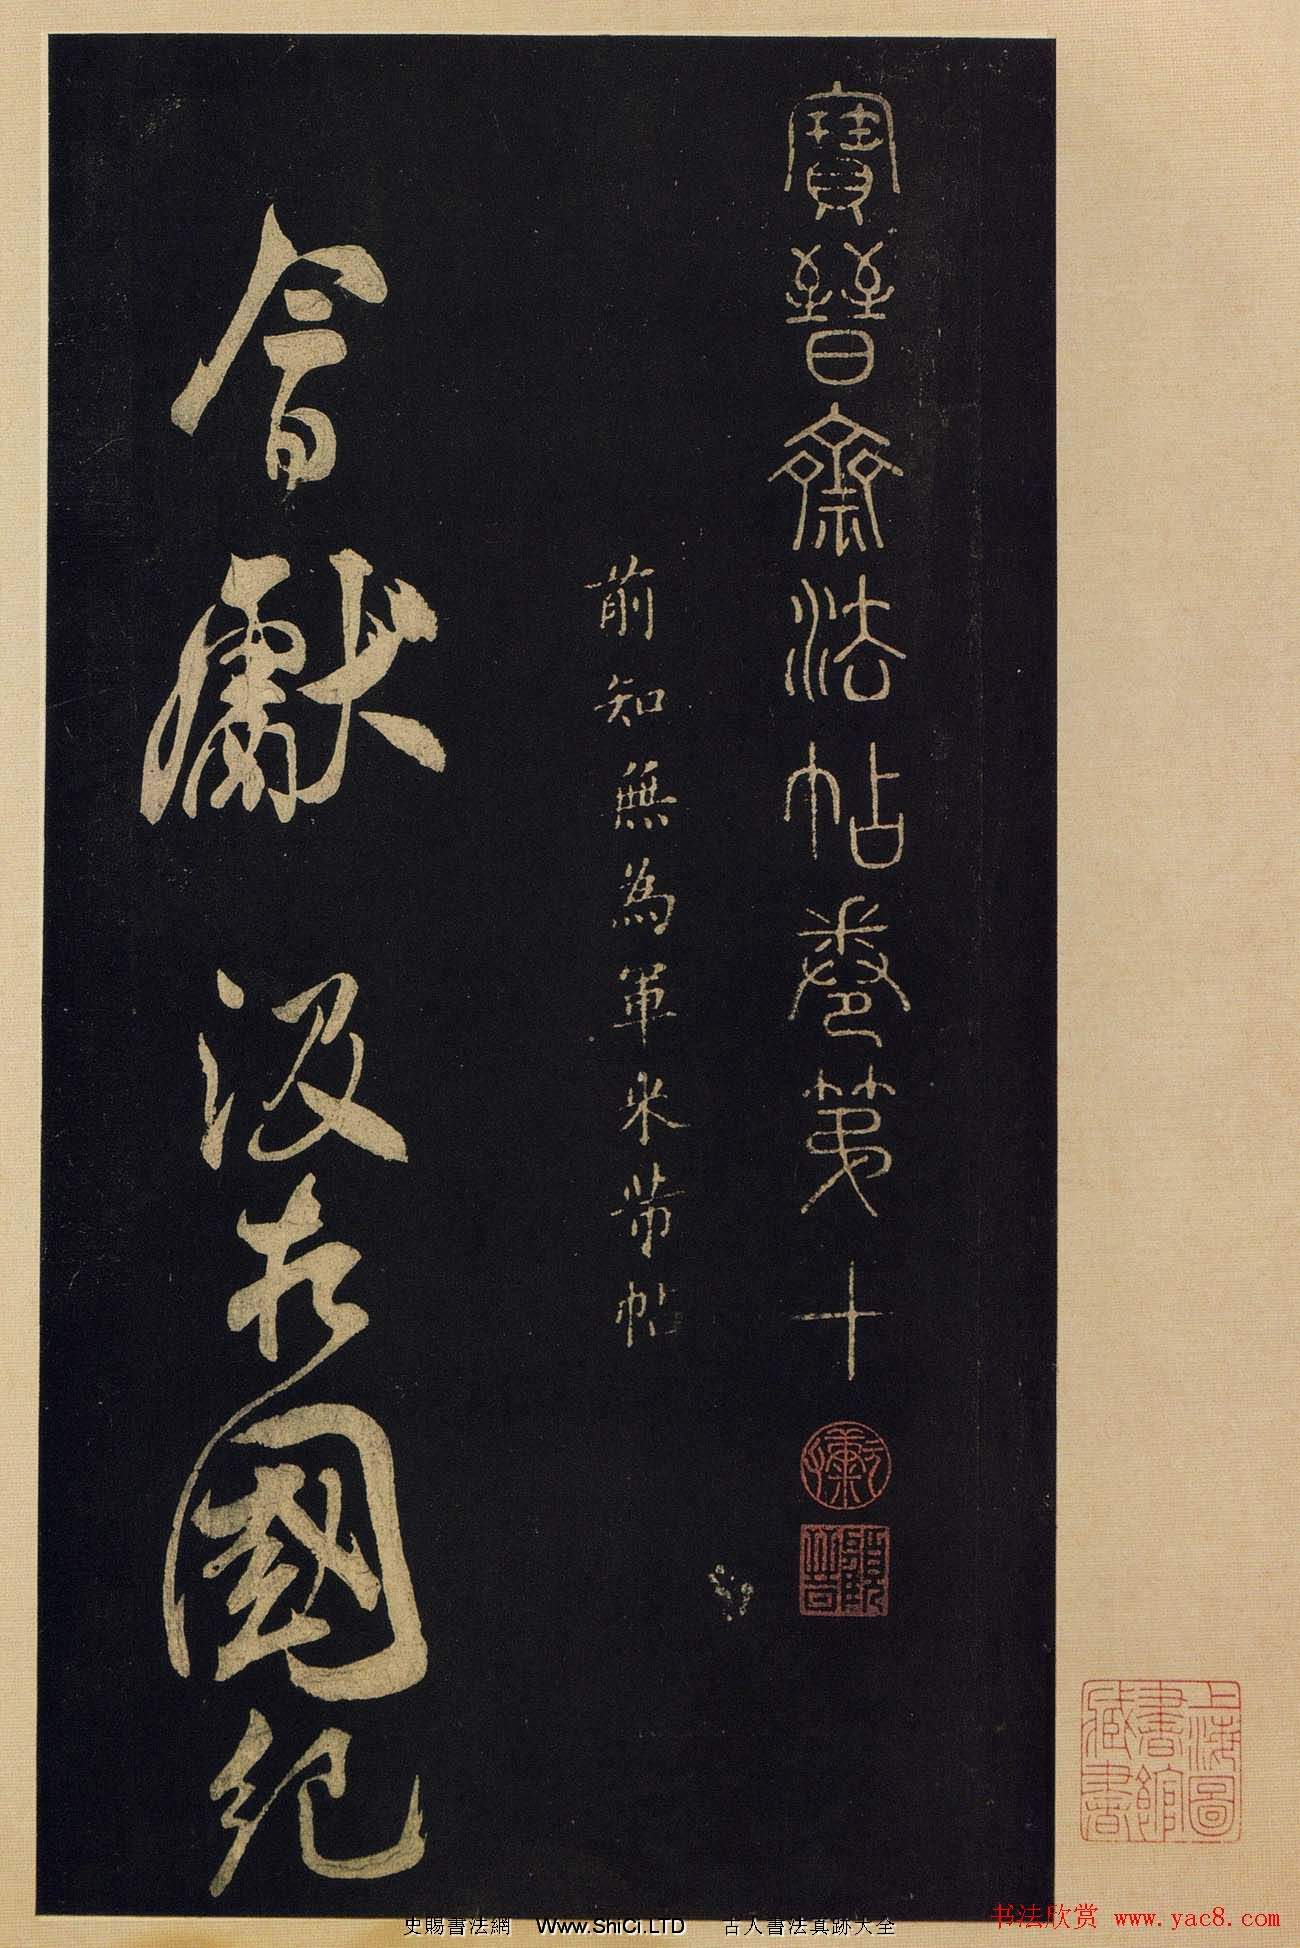 寶晉齋法帖卷第十
前知無為軍米芾帖
會獻 汲古國紀
上海圖書館藏書
史賜書法網 Www.ShiCi.LTD 古人書法真跡大全
书法欣赏 www.yac8.com